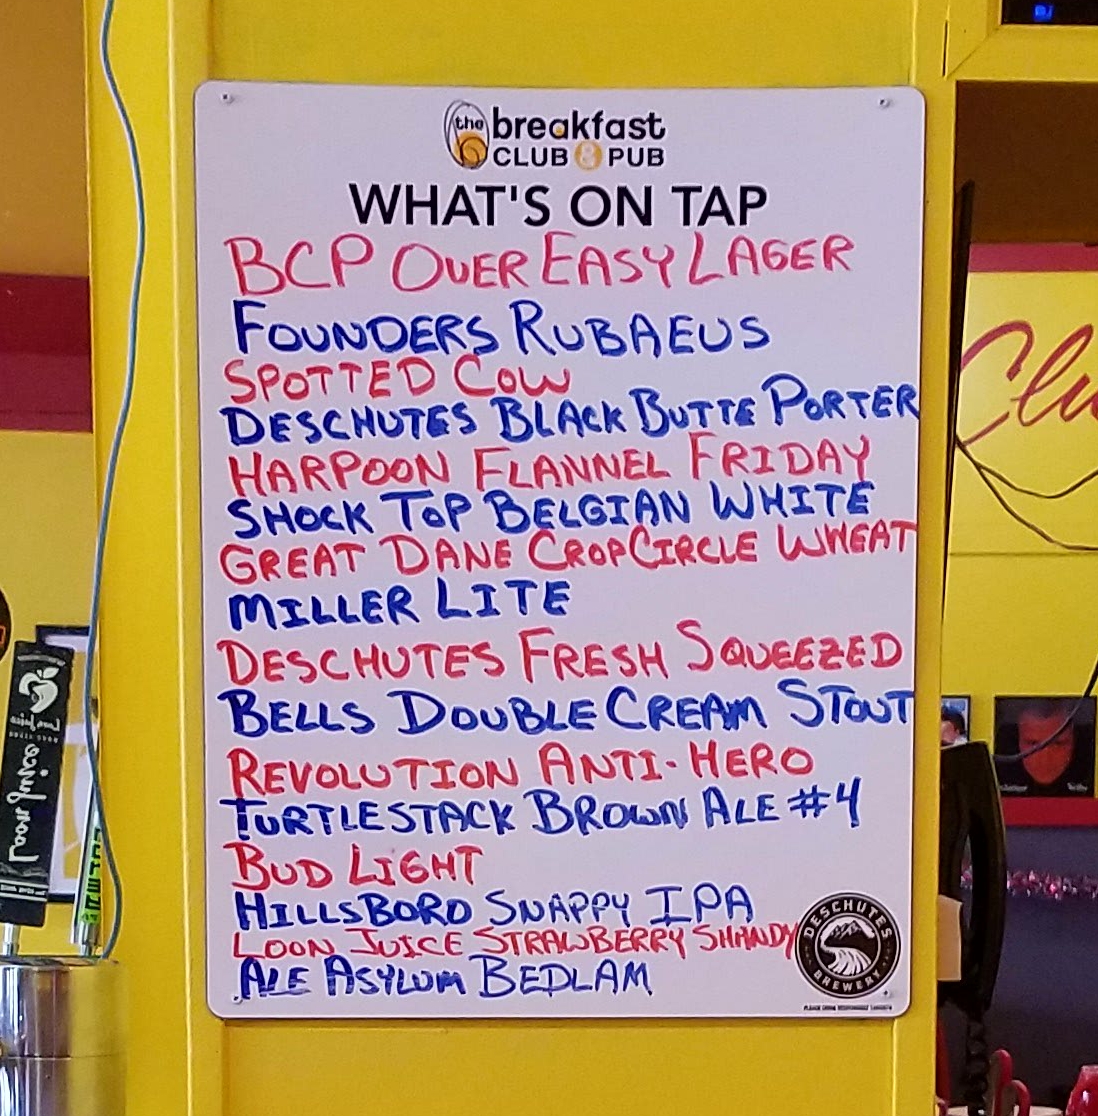 the breakfast
CLUB & PUB
WHAT'S ON TAP
BCP OVER EASY LAGER
FOUNDERS RUBAEUS
SPOTTED COW
DESCHUTES BLACK BUTTE PORTER
HARPOON FLANNEL FRIDAY
SHOCK TOP BELGIAN WHITE
GREAT DANE CROP CIRCLE WHEAT
MILLER LITE
DESCHUTES FRESH SQUEEZED
BELLS DOUBLE CREAM STOUT
REVOLUTION ANTI-HERO
TURTLESTACK BROWN ALE #4
BUD LIGHT
HILLSBORO SNAPPY IPA
LOON JUICE STRAWBERRY SHANDY
ALE ASYLUM BEDLAM
DESCHUTES
BREWERY
Loon Juice